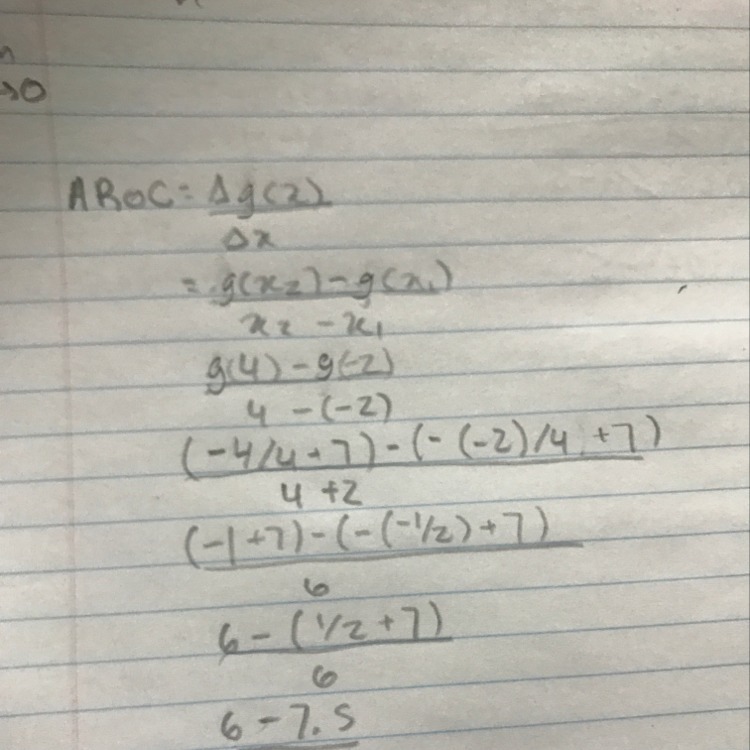 →0
AROC = Δg(x)
Δx
= g(x₂) - g(x₁)
x₂ - x₁
g(4) - g(-2)
4 - (-2)
(-4/4 + 7) - (- (-2)/4 + 7)
4 + 2
(-1 + 7) - (-(-1/2) + 7)
6
6 - (1/2 + 7)
6
6 - 7.5